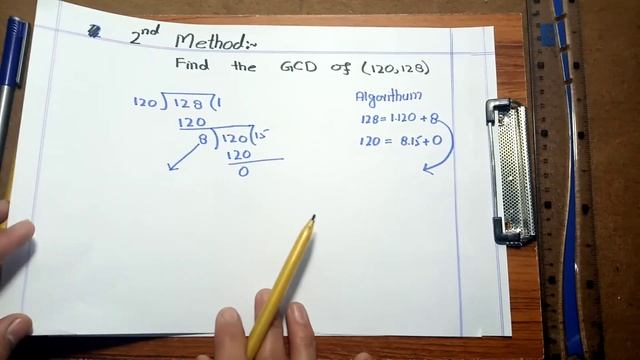 2nd Method:~
Find the GCD of (120,128)
120)128(1
120
8)120(15
120
0
Algorithum
128=1.120+8
120= 8.15+0